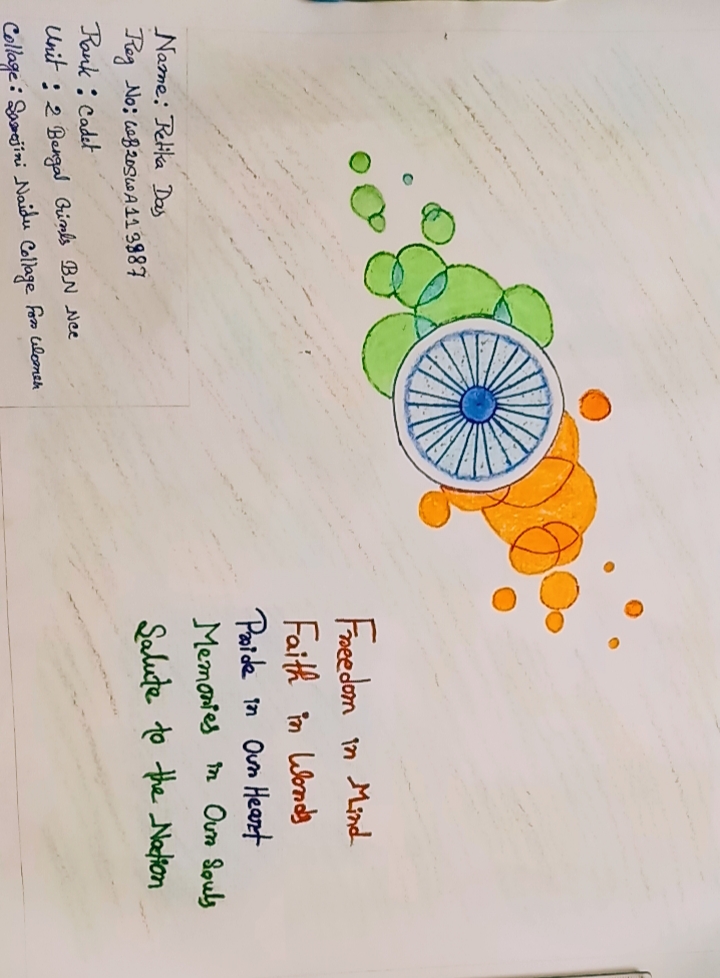 Freedom in Mind
Faith in Words
Pride in Our Heart
Memories in Our Souls
Salute to the Nation
Name: Retika Das
Reg No:
Rank: Cadet
Unit: 2 Bengal Girls BN Ncc
Collage: Sarojini Naidu Collage For Women